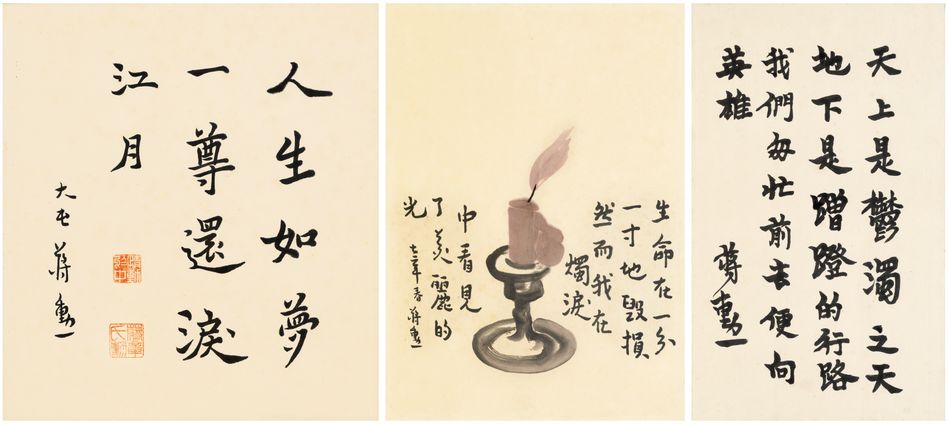 人生如夢
一尊還淚
江月
大屯 蔣勳
生命在一分
一寸地毀損
然而我在
燭淚
中看見
了美麗的
光
年春 蔣勳
天上是鬱濁之天
地下是蹭蹬的行路
我們匆忙前去便向
英雄
蔣勳